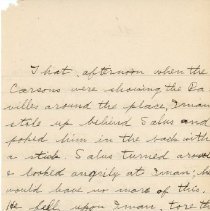 That afternoon when the
Carsons were showing the Da
villes around the place, Iman
stole up behind Salus and
poked him in the back with
a stick. Salus turned around
& looked angrily at Iman; he
would have no more of this.
He fell upon Iman, tore the